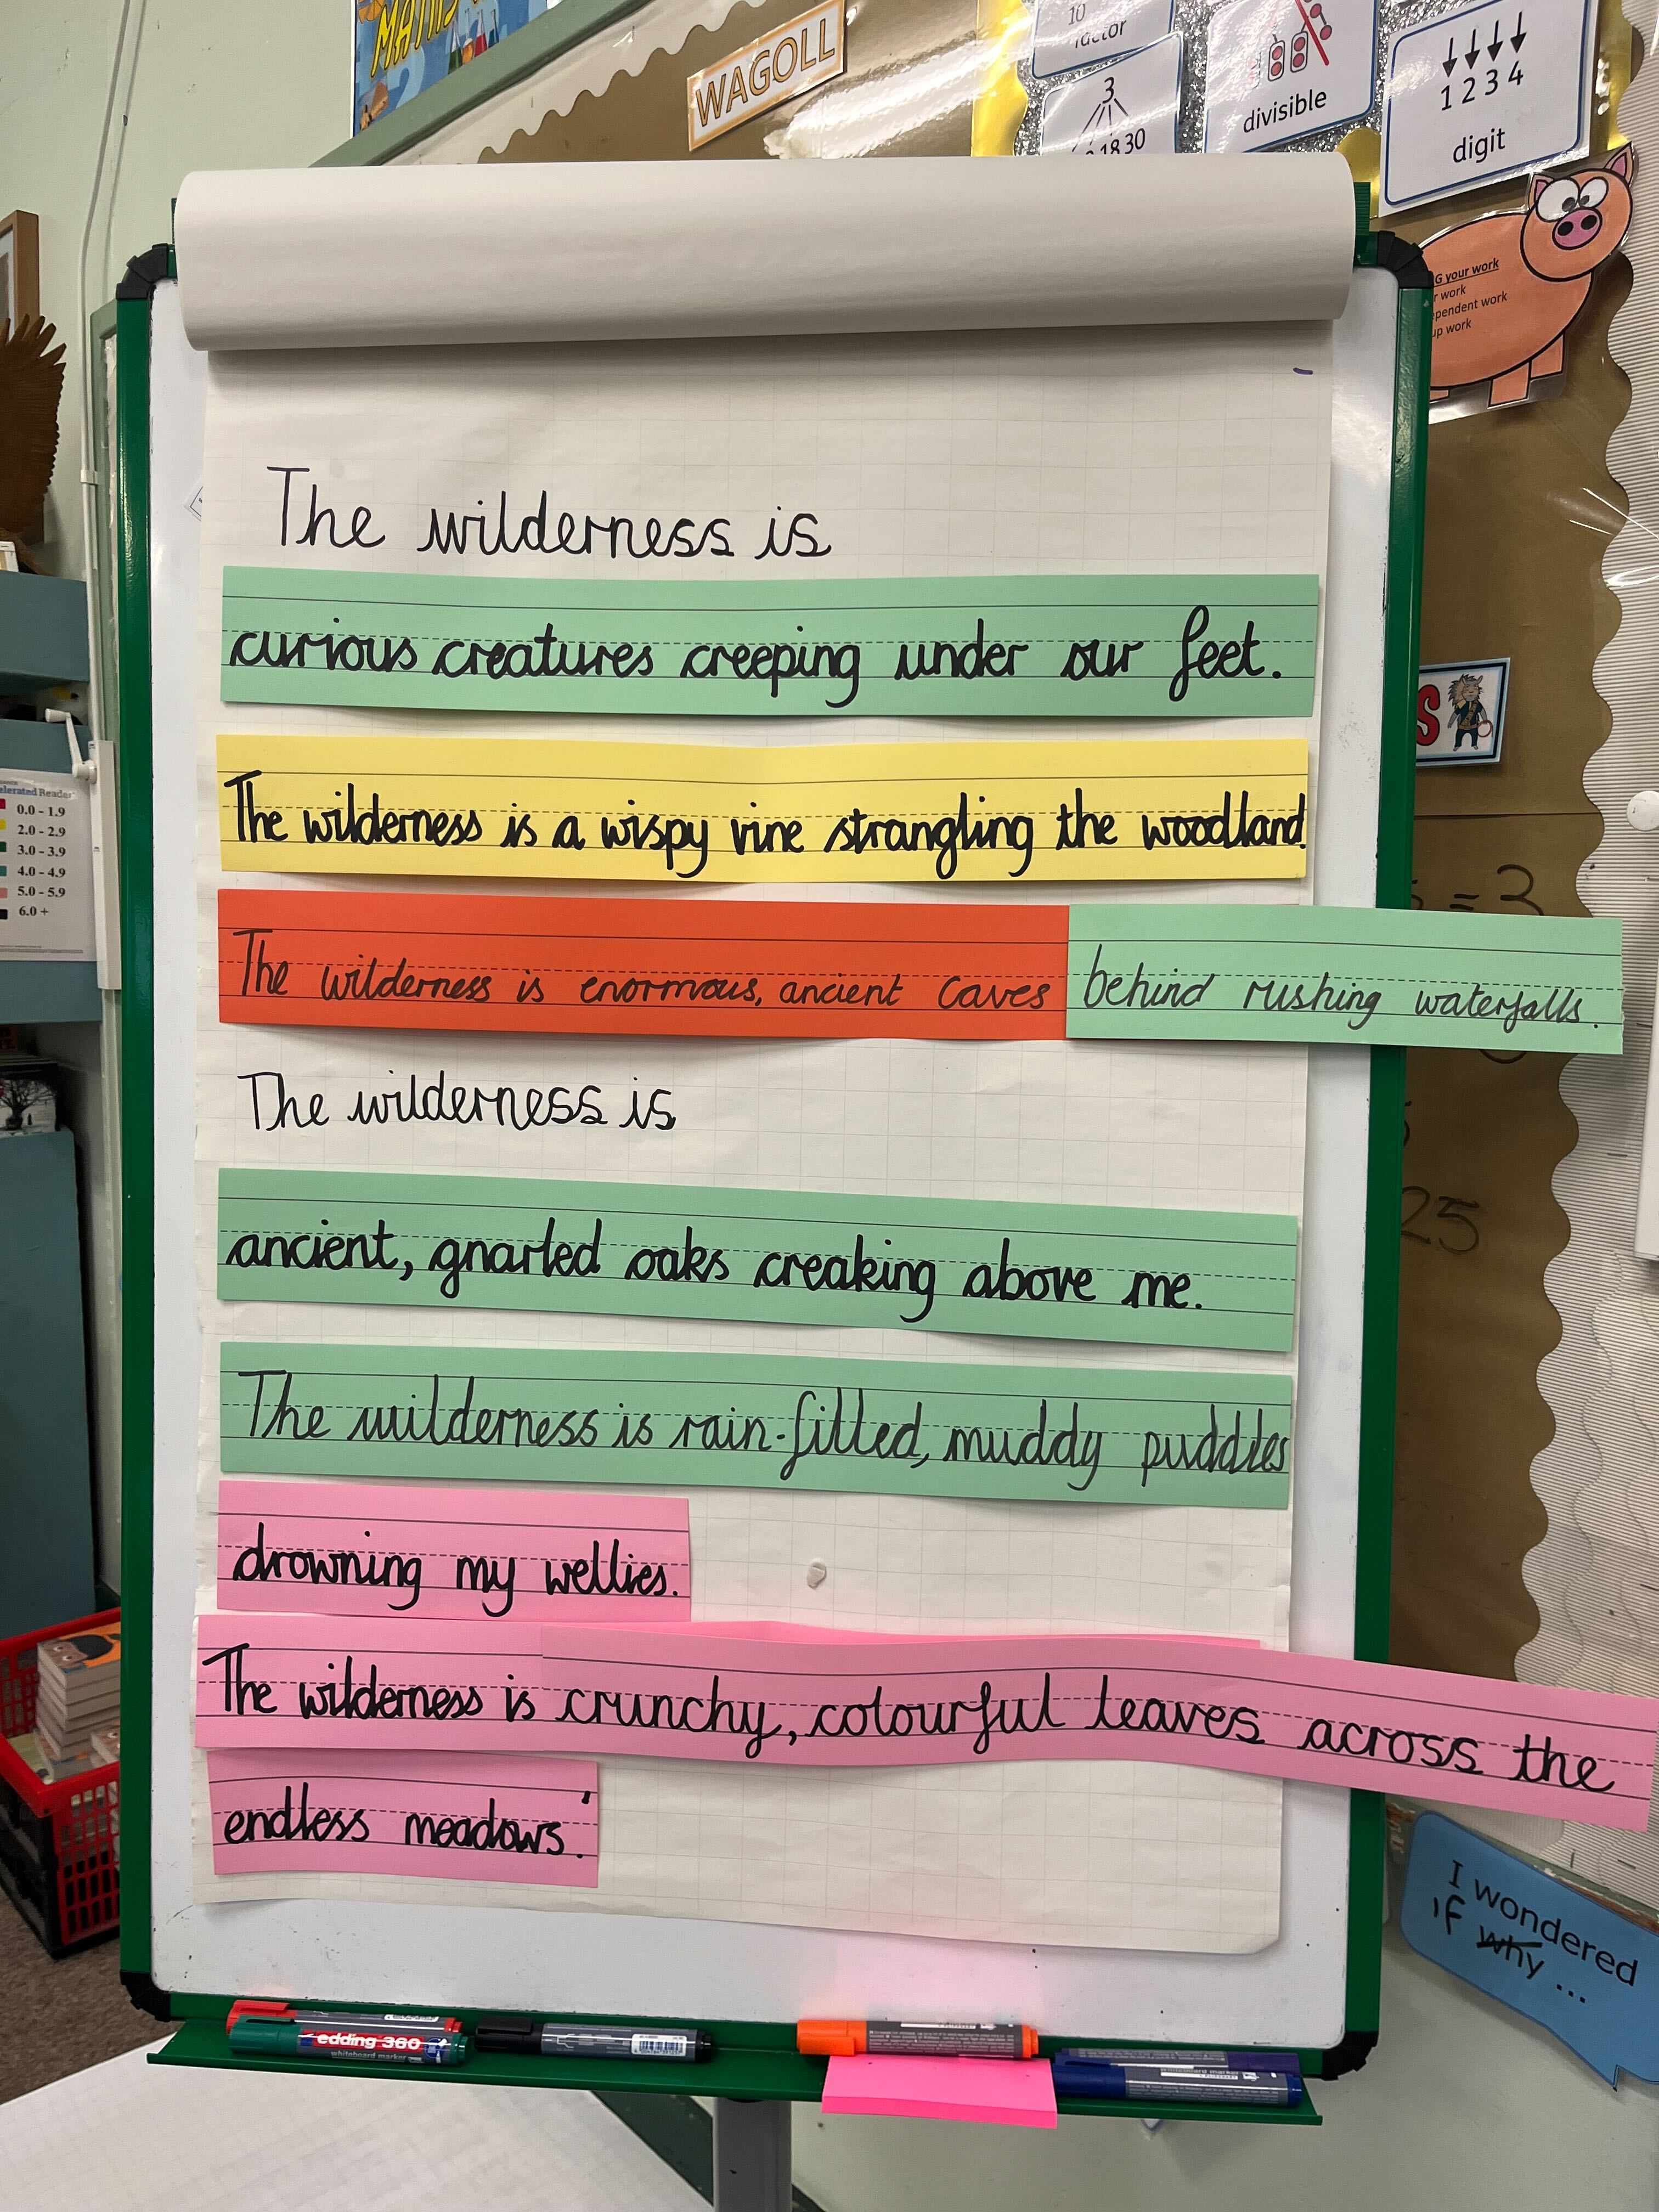 MATHS
WAGOLL
10
factor
3
18 30
divisible
1 2 3 4
digit
G your work
r work
ependent work
up work
The wilderness is
curious creatures creeping under our feet.
The wilderness is a wispy vine strangling the woodland.
The wilderness is enormous, ancient caves behind rushing waterfalls.
The wilderness is
ancient, gnarled oaks creaking above me.
The wilderness is rain-filled, muddy puddles
drowning my wellies.
The wilderness is crunchy, colourful leaves across the
endless meadows.
elerated Reader
0.0 - 1.9
2.0 - 2.9
3.0 - 3.9
4.0 - 4.9
5.0 - 5.9
6.0 +
S
= 3
25
I wondered
if why ...
edding 360
whiteboard marker